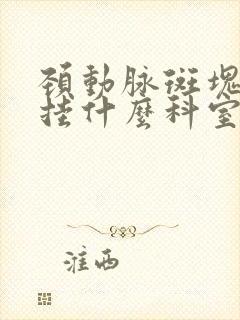 頚動脉斑塊
挂什麽科室
淮西